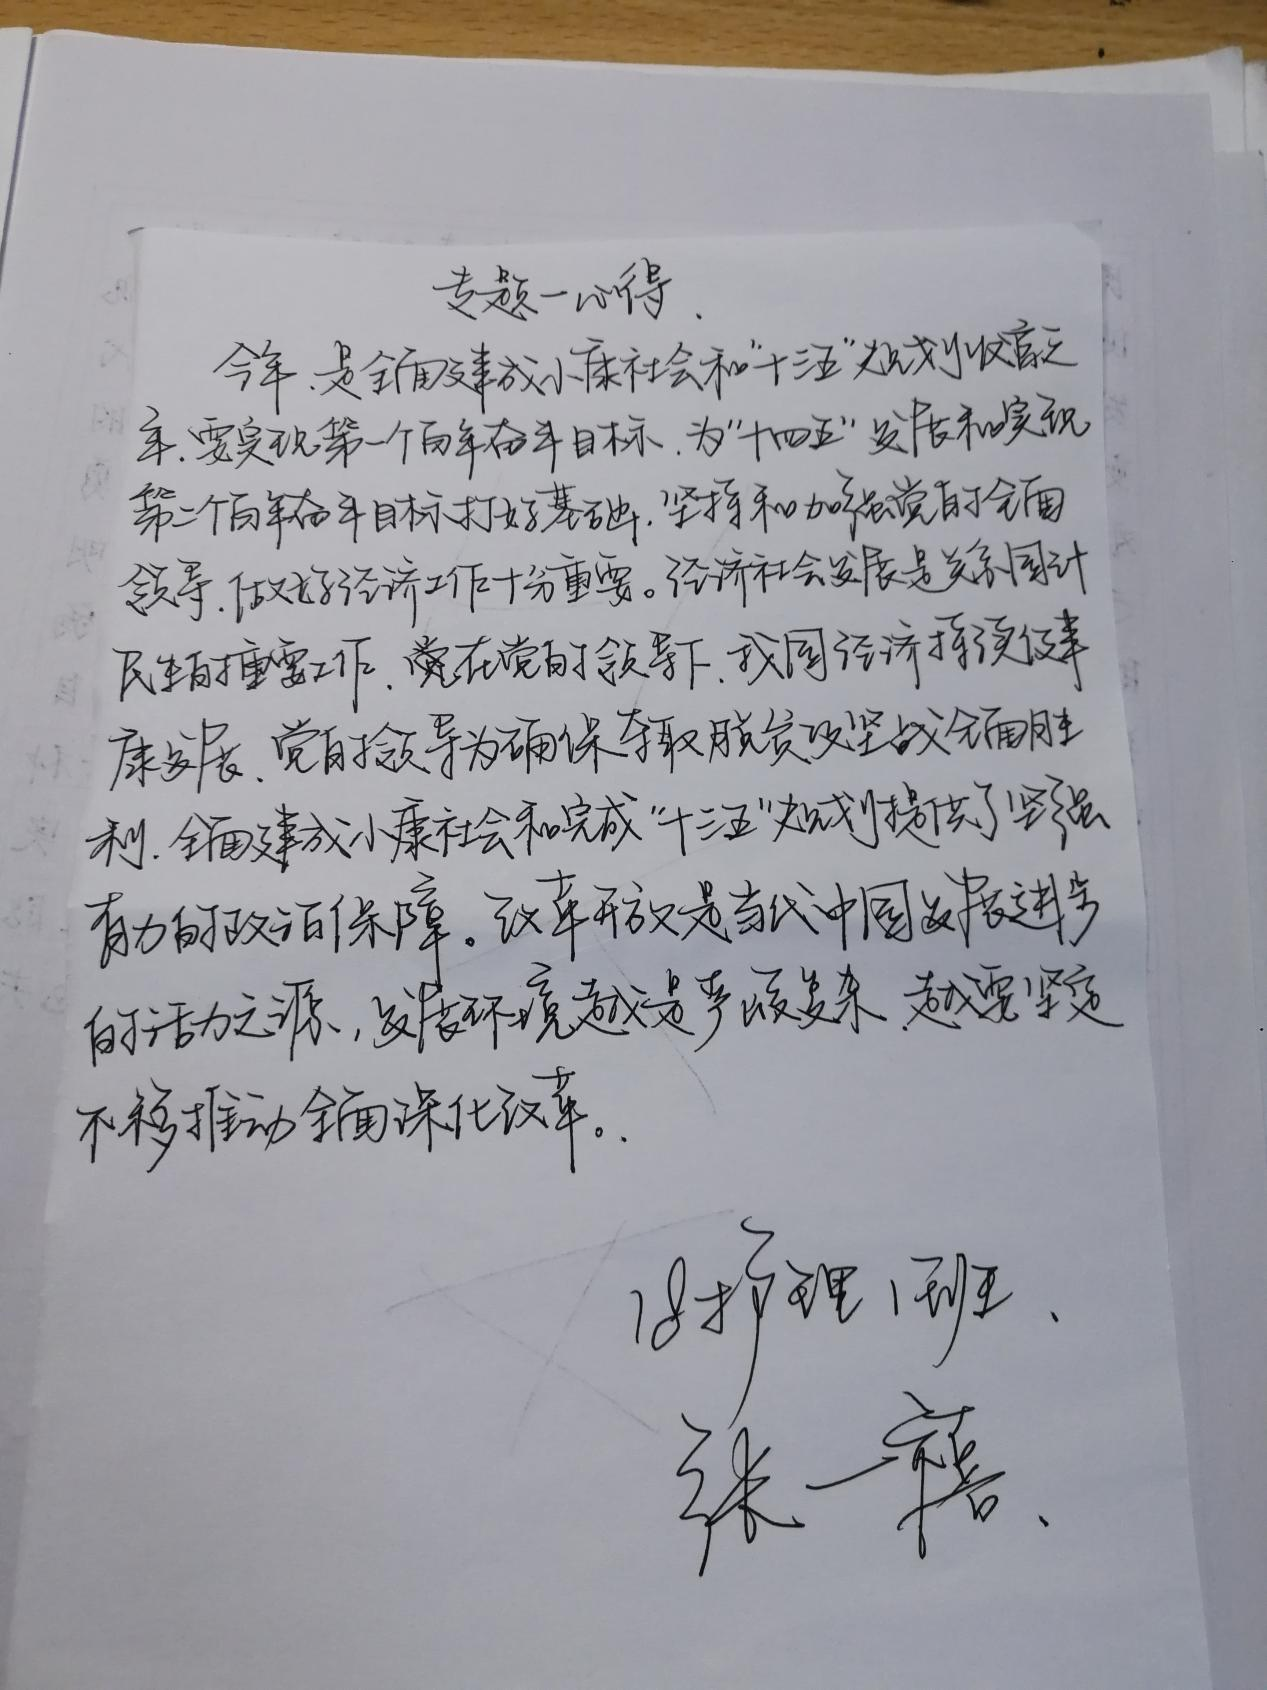 专题一心得.
今年、是全面建成小康社会和"十三五"规划收官之
年、要实现第一个百年奋斗目标、为"十四五"发展和实现
第二个百年奋斗目标打好基础、坚持和加强党的全面
领导、做好经济工作十分重要。经济社会发展是关系国计
民生的重要工作、党在党的领导下、我国经济持续健
康发展、党的领导为确保夺取脱贫攻坚战全面胜
利、全面建成小康社会和完成"十三五"规划提供了坚强
有力的政治保障。改革开放是当代中国发展进步
的活力之源,发展环境越是严峻复杂、越要坚定
不移推动全面深化改革。.
18护理1班、
张一禧、